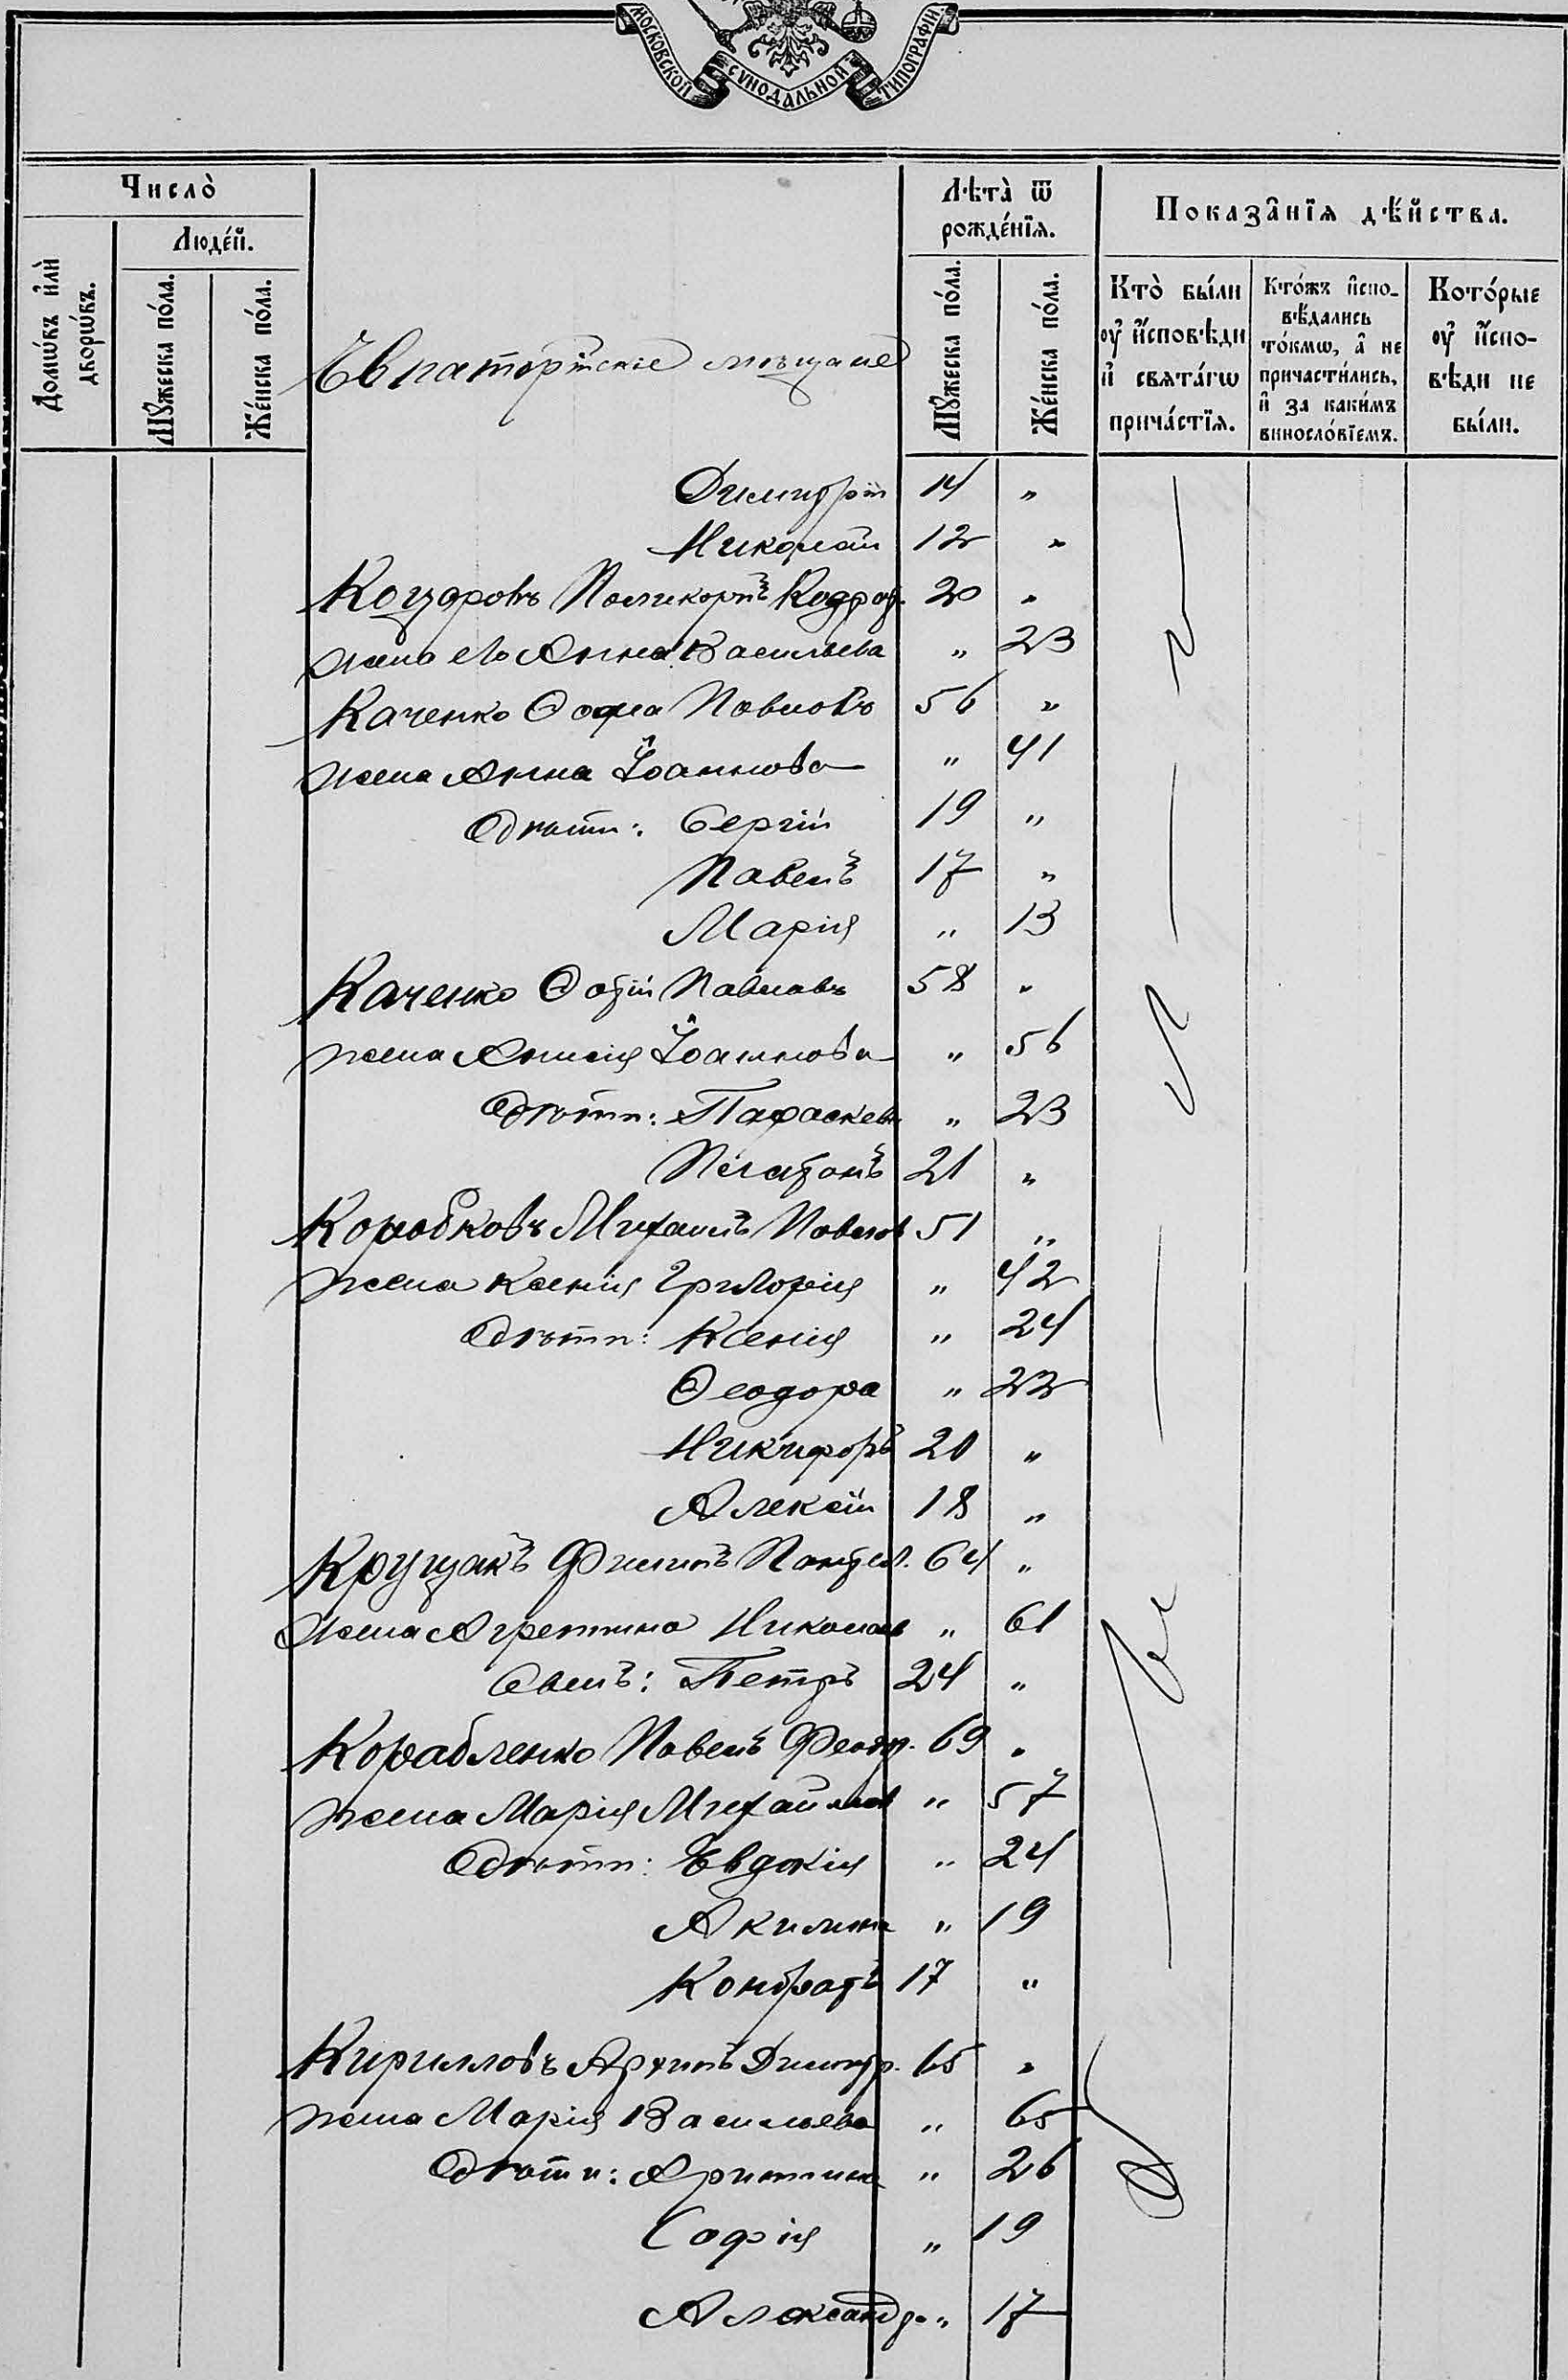 МОСКОВСКОЙ СѴНОДАЛЬНОЙ ТИПОГРАФІИ
Число̀
Людéй.
Домѡ́въ и҆лѝ дворѡ́въ.
Мꙋ́жеска по́ла.
Же́нска по́ла.
Евпаторійскіе мѣщане
Лѣта̀ ѿ рожде́нїѧ.
Мꙋ́жеска по́ла.
Же́нска по́ла.
Показа̑нїѧ дѣ́йства.
Кто̀ бы́ли ᲂу҆ и҆́сповѣди и҆ свѧта́гѡ прича́стїѧ.
Кто́жъ и҆спо-вѣ́дались то́кмѡ, а҆ не причасти́лись, и҆ за каки́мъ виносло́вїемъ.
Кото́рые ᲂу҆ и҆́спо-вѣди не бы́ли.
Димитрій 14 "
Николай 12 "
Поликарпъ 20 "
жена его Анна Васильева " 23
Каченко Ѳома Павловъ 56 "
жена Анна Іоаннова " 41
Дѣти: Сергій 19 "
Павелъ 17 "
Марія " 13
Каченко Фотій Павловъ 58 "
жена Анисія Іоаннова " 56
Дѣти: Параскев " 23
Платонъ 21 "
Коробковъ Михаилъ Павлов 51 "
жена Ксенія Григорія " 42
Дѣти: Ксенія " 24
Ѳеодора " 22
Никифоръ 20 "
Алексій 18 "
Крущакъ Филипъ Пантел. 64 "
жена Агрепина Николаев " 61
Сынъ: Петръ 24 "
Корабленко Павелъ Феодр. 69 "
жена Марія Михайлов " 57
Дѣти: Евдокія " 24
Акилина " 19
Кондратъ 17 "
Кирилловъ Архипъ Димитр. 65 "
жена Марія Васильева " 65
Дѣти: " 26
Софія " 19
Александр. " 17